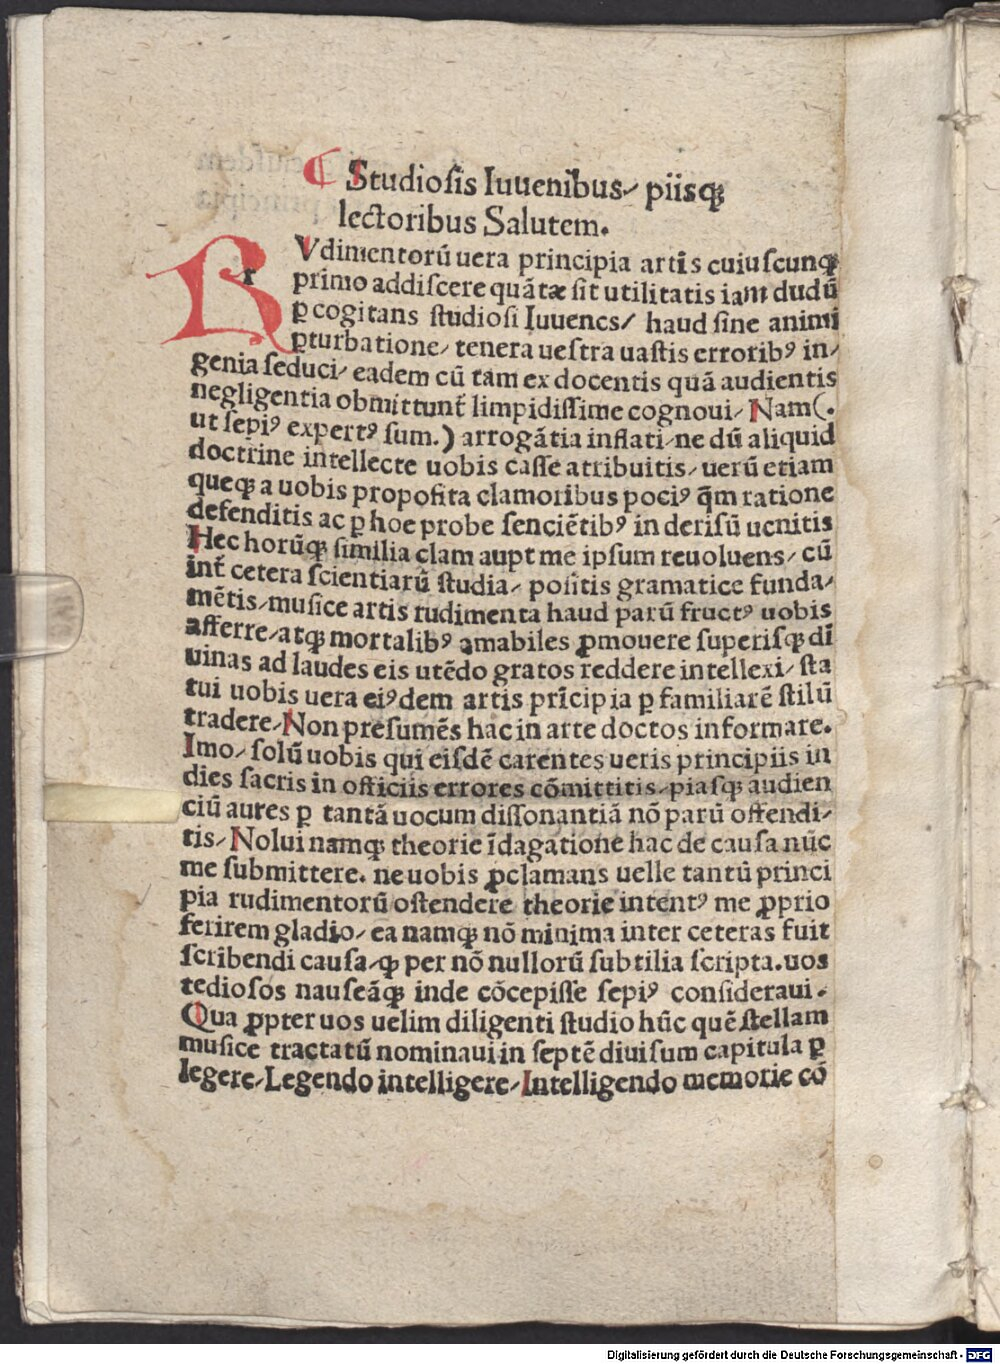 ¶ Studiosis Iuuenibus⸗ piisqꝫ
lectoribus Salutem.
RVdimentorū uera principia artis cuiuscunqꝫ
primo addiscere quātæ sit utilitatis iam dudū
ꝑcogitans studiosi Iuuenes/ haud sine animi
ꝑturbatione⸗ tenera uestra uastis erroribꝰ in⸗
genia seduci⸗ eadem cū tam ex docentis quā audientis
negligentia obmittunt̄ limpidissime cognoui⸗ Nam(.
ut sepiꝰ expertꝰ sum.) arrogātia inflati⸗ne dū aliquid
doctrine intellecte uobis casse atribuitis⸗ uerū etiam
queqꝫ a uobis proposita clamoribus pociꝰ q̄m ratione
defenditis ac ꝑ hoc probe senciētibꝰ in derisū uenitis
Hec horūqꝫ similia clam aupt me ipsum reuoluens⸗ cū
int̄ cetera scientiarū studia⸗ positis gramatice funda⸗
mētis⸗musice artis rudimenta haud parū fructꝰ uobis
afferre⸗atqꝫ mortalibꝰ amabiles ꝓmouere superisqꝫ di
uinas ad laudes eis utēdo gratos reddere intellexi⸗ sta
tui uobis uera eiꝰdem artis prīcipia ꝑ familiarē stilū
tradere⸗Non presumēs hac in arte doctos informare.
Imo⸗ solū uobis qui eisdē carentes ueris principiis in
dies sacris in officiis errores cōmittitis⸗piasqꝫ audien
ciū aures ꝑ tantā uocum dissonantiā nō parū offendi⸗
tis⸗ Nolui namqꝫ theorie īdagatione hac de causa nūc
me submittere. ne uobis ꝓclamans uelle tantū princi
pia rudimentorū ostendere theorie intentꝰ me ꝓprio
ferirem gladio⸗ ea namqꝫ nō minima inter ceteras fuit
scribendi causa⸗qꝫ per nō nullorū subtilia scripta.uos
tediosos nauseāqꝫ inde cōcepisse sepiꝰ consideraui.
Qua ꝓpter uos uelim diligenti studio hūc quē stellam
musice tractatū nominaui in septē diuisum capitula ꝑ
legere⸗Legendo intelligere⸗Intelligendo memorie cō
Digitalisierung gefördert durch die Deutsche Forschungsgemeinschaft - DFG